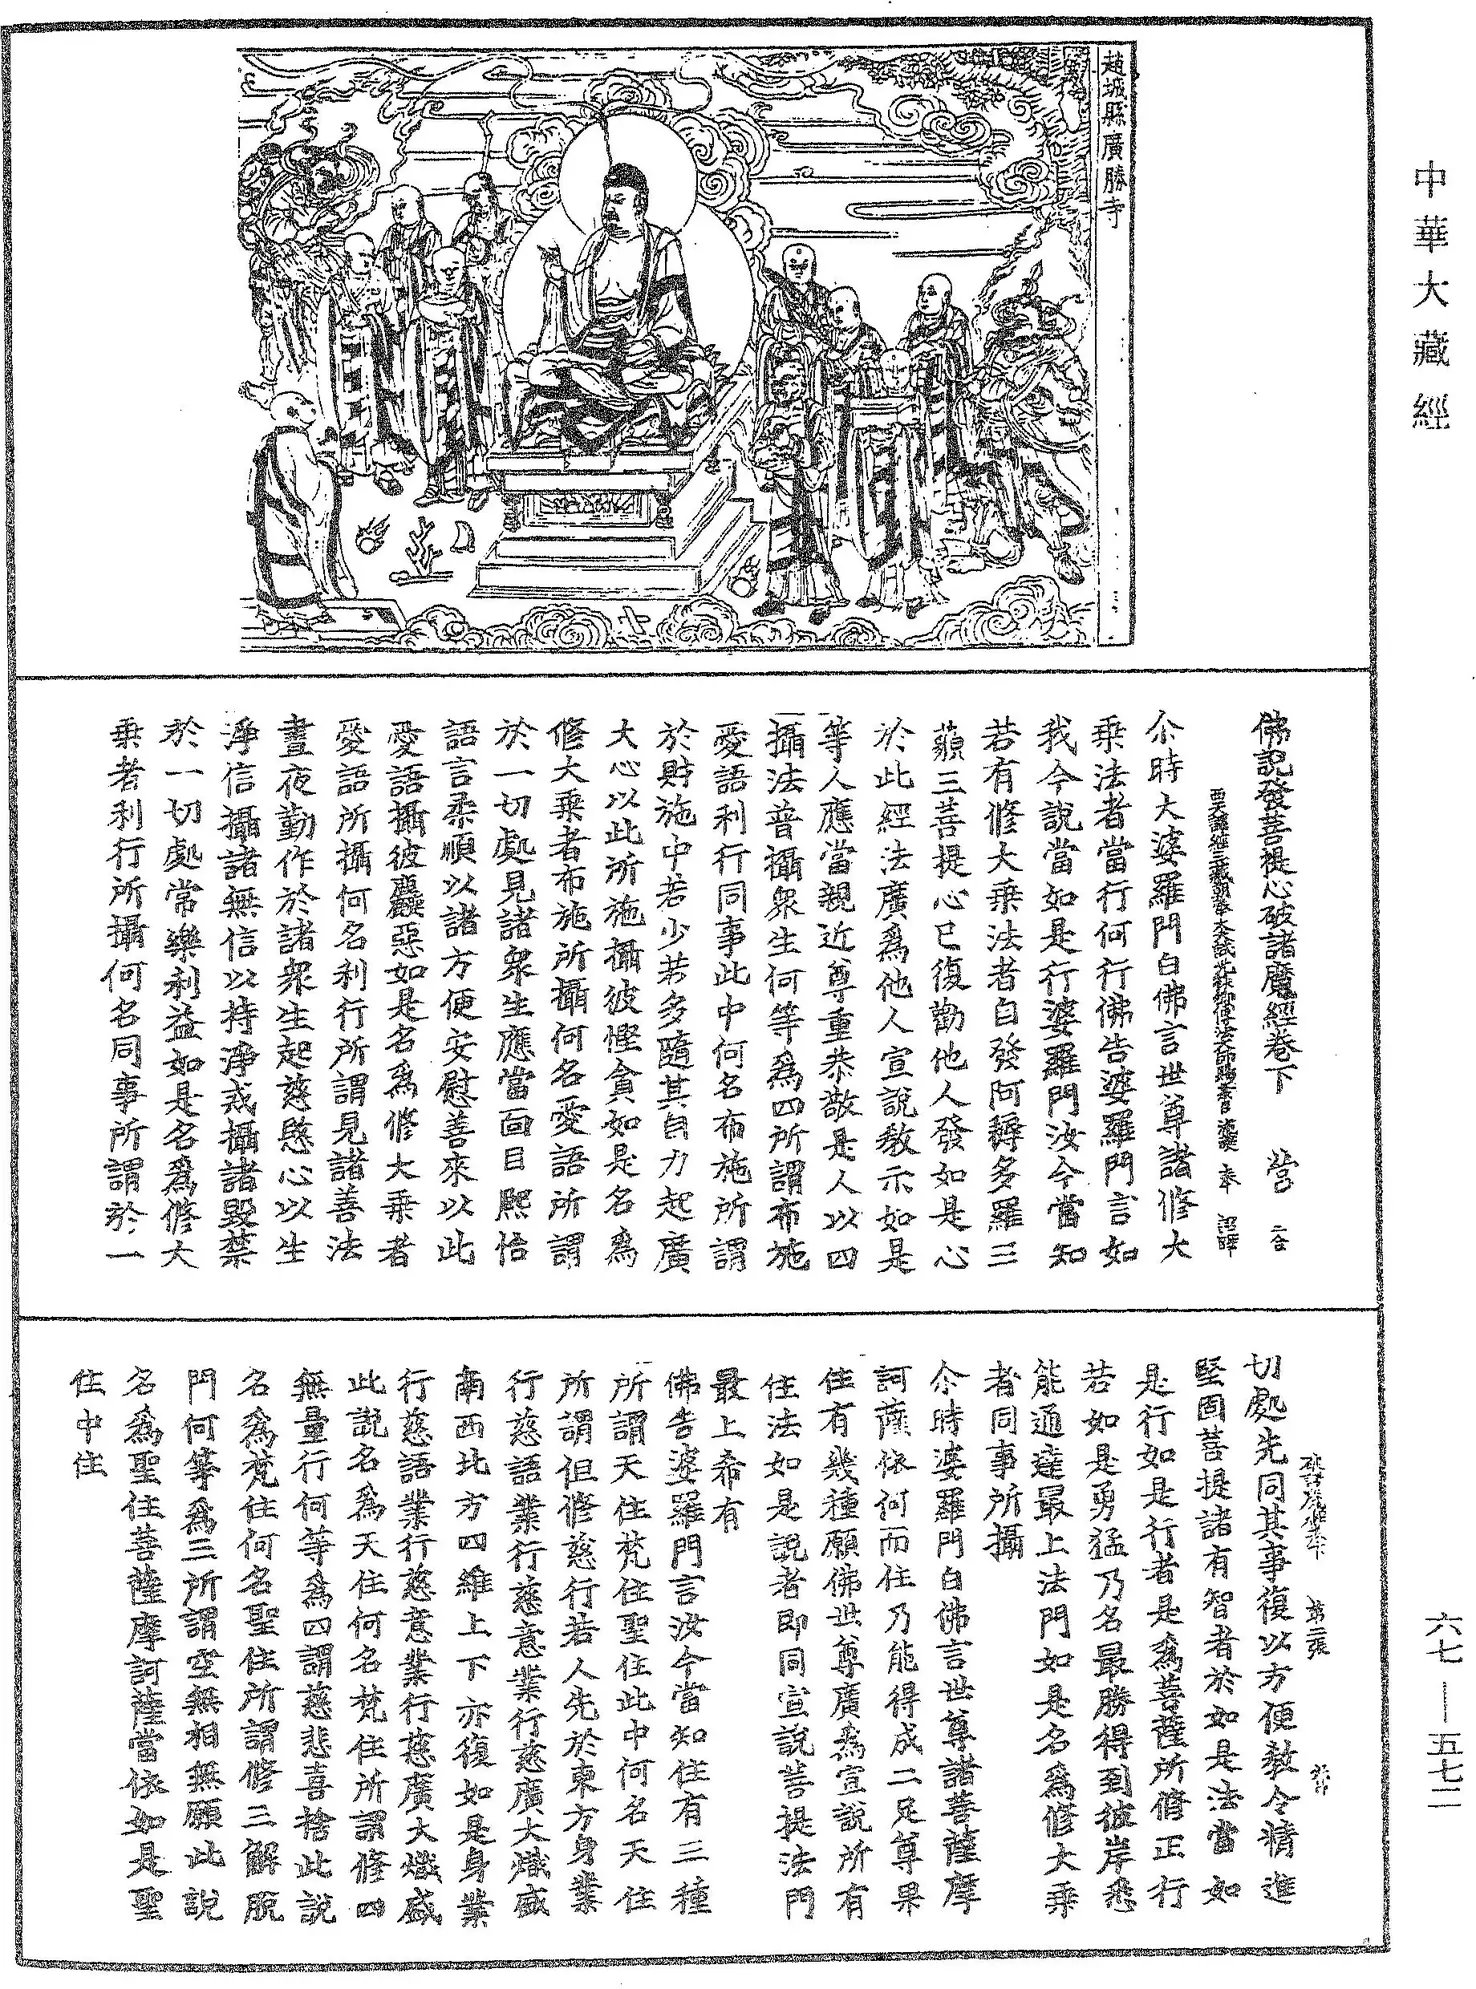 中華大藏經
趙城縣廣勝寺
佛說發菩提心破諸魔經卷下 營 二 合
尒時大婆羅門白佛言世尊諸修大
乗法者當行何行佛告婆羅門言如
我今說當如是行婆羅門汝今當知
若有修大乗法者自發阿耨多羅三
藐三菩提心已復勸他人發如是心
於此經法廣爲他人宣說教示如是
等人應當親近尊重恭敬是人以四
攝法普攝衆生何等爲四所謂布施
愛語利行同事此中何名布施所謂
於財施中若少若多隨其自力起廣
大心以此所施攝彼慳貪如是名爲
修大乗者布施所攝何名愛語所謂
於一切處見諸衆生應當面目熙怡
語言柔順以諸方便安慰善來以此
愛語攝彼麤惡如是名爲修大乗者
愛語所攝何名利行所謂見諸善法
晝夜勤作於諸衆生起慈愍心以生
淨信攝諸無信以持淨戒攝諸毀禁
於一切處常樂利益如是名爲修大
乗者利行所攝何名同事所謂於一
第二張
切處先同其事復以方便教令精進
堅固菩提諸有智者於如是法當如
是行如是行者是爲菩薩所修正行
若如是勇猛乃名最勝得到彼岸悉
能通達最上法門如是名爲修大乗
者同事所攝
尒時婆羅門白佛言世尊諸菩薩摩
訶薩依何而住乃能得成二足尊果
住有幾種願佛世尊廣爲宣說所有
住法如是說者即同宣說菩提法門
最上希有
佛告婆羅門言汝今當知住有三種
所謂天住梵住聖住此中何名天住
所謂但修慈行若人先於東方身業
行慈語業行慈意業行慈廣大熾盛
南西北方四維上下亦復如是身業
行慈語業行慈意業行慈廣大熾盛
此說名爲天住何名梵住所謂修四
無量行何等爲四謂慈悲喜捨此說
名爲梵住何名聖住所謂修三解脫
門何等爲三所謂空無相無願此說
名爲聖住菩薩摩訶薩當依如是聖
住中住
六七—五七二